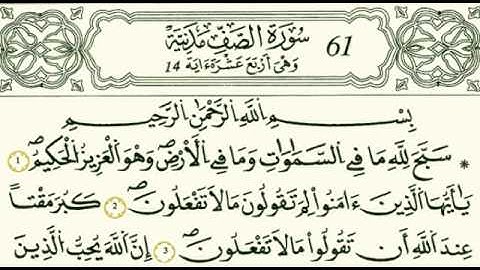 سُورَةُ الصَّفِّ مَدَنِيَّةٌ 61
وَهِيَ أَرْبَعَ عَشْرَةَ ءَايَةً 14
بِسْمِ اللَّهِ الرَّحْمَٰنِ الرَّحِيمِ
* سَبَّحَ لِلَّهِ مَا فِي السَّمَاوَاتِ وَمَا فِي الْأَرْضِ وَهُوَ الْعَزِيزُ الْحَكِيمُ 1
يَا أَيُّهَا الَّذِينَ ءَامَنُوا لِمَ تَقُولُونَ مَا لَا تَفْعَلُونَ 2 كَبُرَ مَقْتاً
عِندَ اللَّهِ أَن تَقُولُوا مَا لَا تَفْعَلُونَ 3 إِنَّ اللَّهَ يُحِبُّ الَّذِينَ